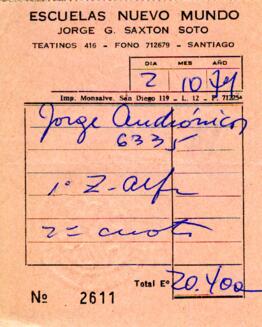 ESCUELAS NUEVO MUNDO
JORGE G. SAXTON SOTO
TEATINOS 416 - FONO 712679 - SANTIAGO
DIA MES AÑO
2 10 74
Imp. Monsalve. San Diego 119 - L. 12 - F. 712254
Jorge Andrónicos
6335
1º Z-Alfa
2ª cuota
Total Eº 20.400
Nº 2611